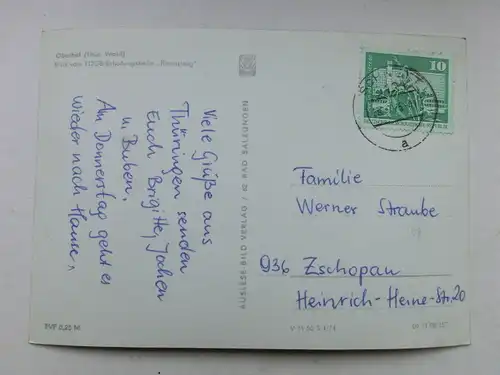 Oberhof (Thür. Wald)
Blick vom FDGB-Erholungsheim „Rennsteig"
Viele Grüße aus
Thüringen senden
Euch Brigitte, Jochen
u. Buben.
Am Donnerstag geht es
wieder nach Hause.
EVP 0,20 M
AUSLESE-BILD-VERLAG / 62 BAD SALZUNGEN
10
a
Familie
Werner Straube
936 Zschopau
Heinrich-Heine-Str. 20